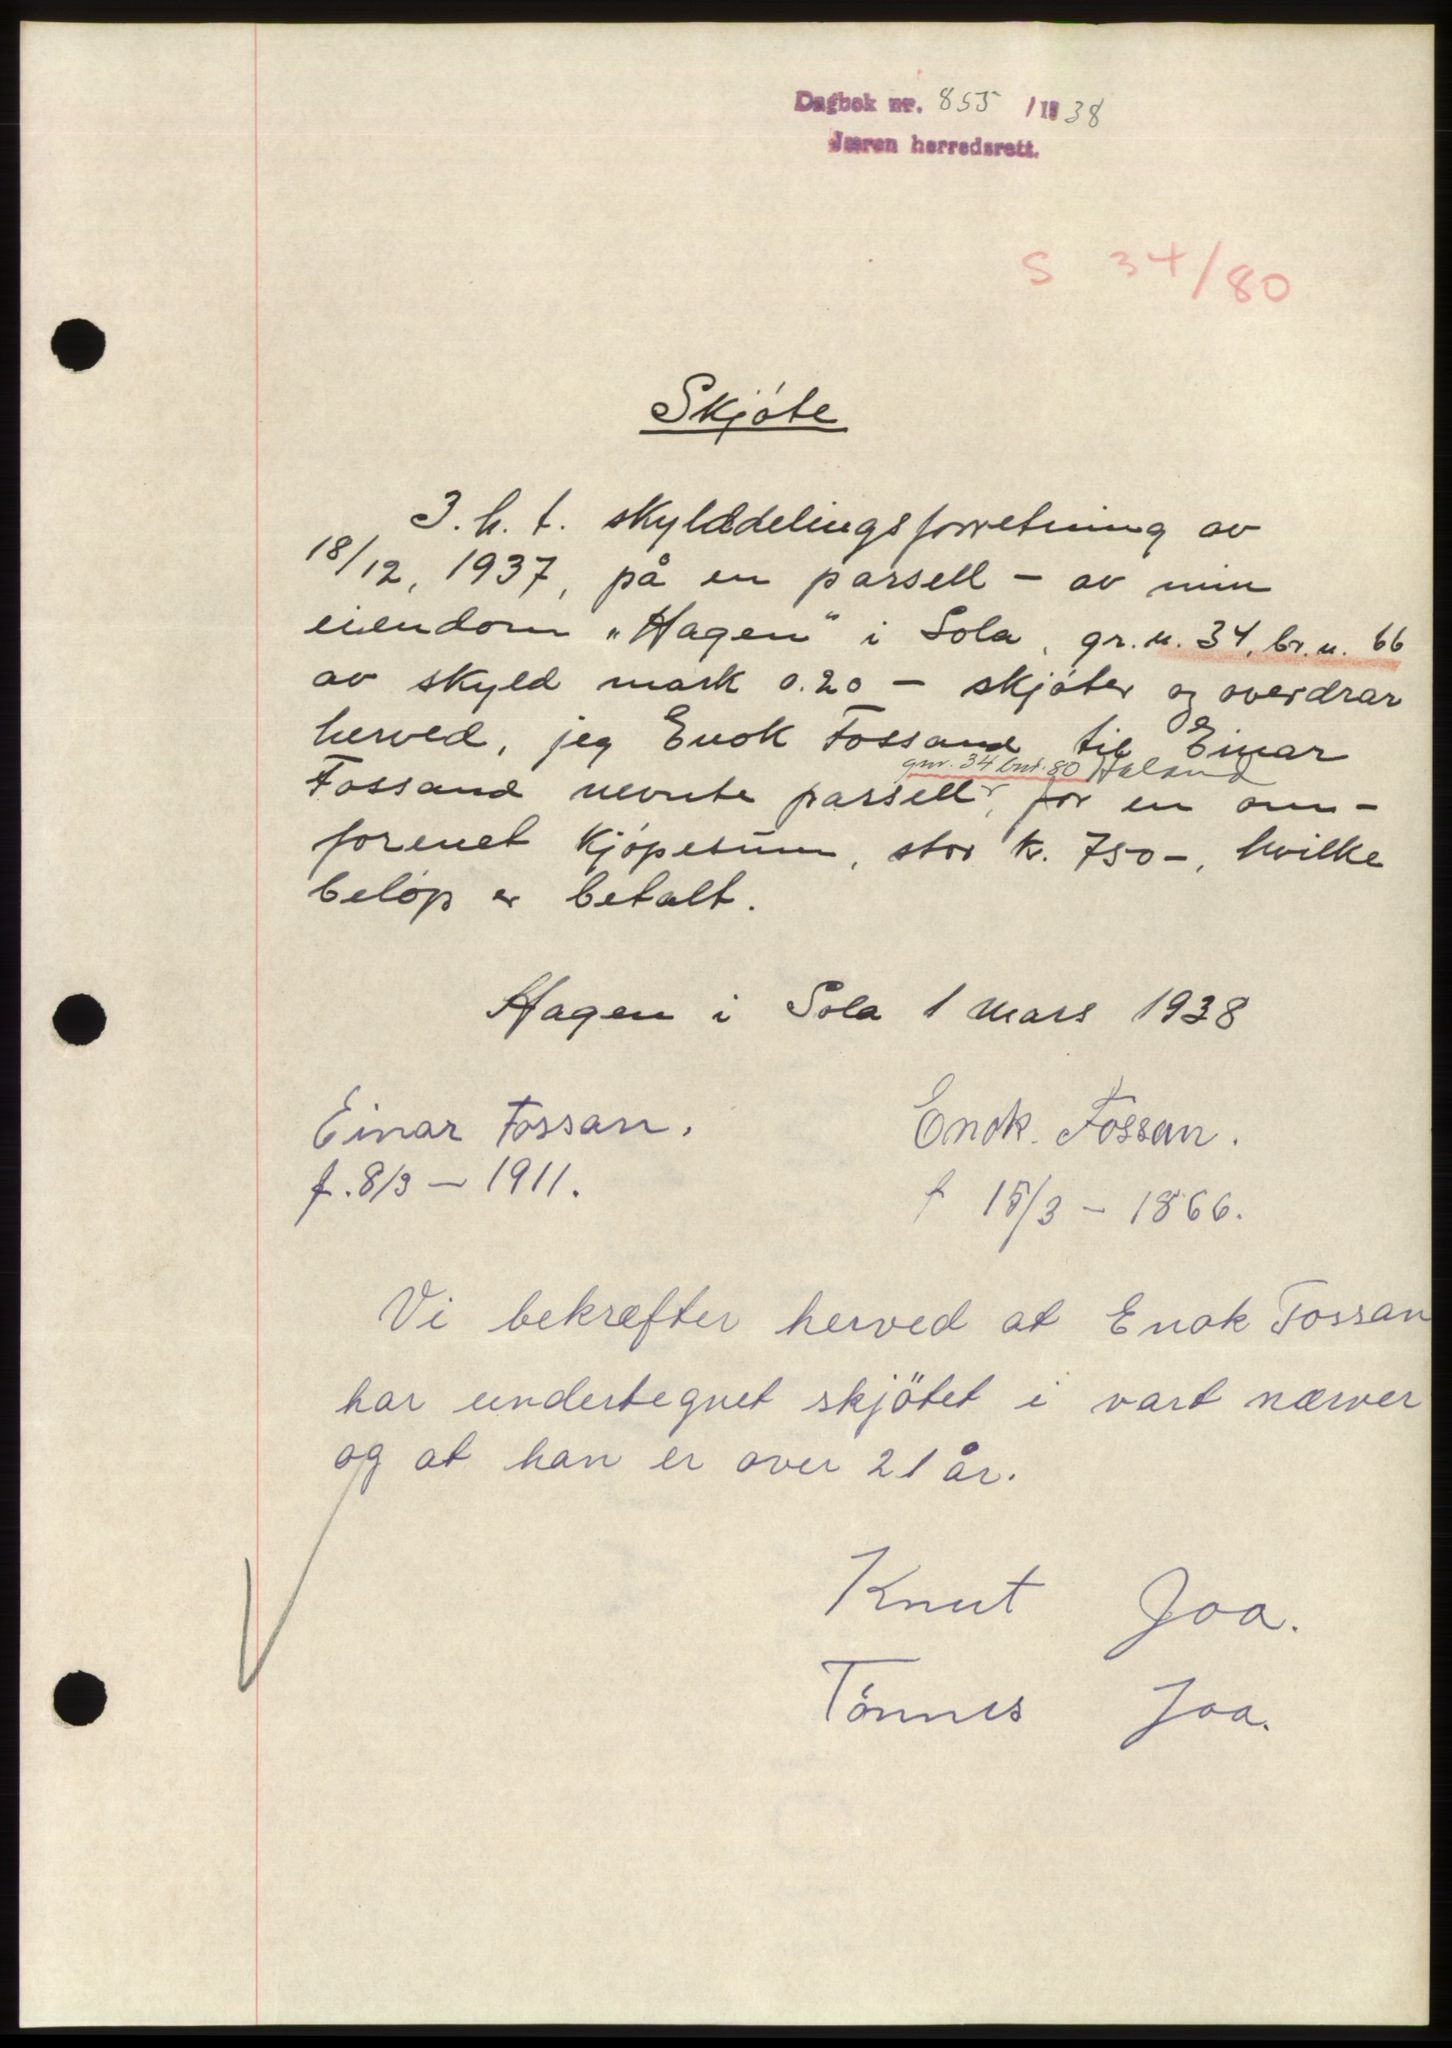 Dagbok nr. 855 /1938
Jæren herredsrett.
S 34/80
Skjøte
I. h. t. skylddelingsforretning av
18/12, 1937, på en parsell - av min
eiendom „Hagen" i Sola, gr. n. 34, br. n. 66
av skyld mark 0.20 - skjøter og overdrar
herved, jeg Enok Fossand til Einar
gnr. 34 bnr. 80 Haland
Fossand nevnte parsell, for en om-
forenet kjøpesum, stor kr. 750-, hvilke
beløp er betalt.
Hagen i Sola 1 mars 1938
Einar Fossan. Enok Fossan.
f. 8/3 - 1911. f 15/3 - 1866.
Vi bekræfter herved at Enok Fossan
har undertegnet skjötet i vart nærver
og at han er over 21 år.
Knut Joa.
Tönnes Joa.